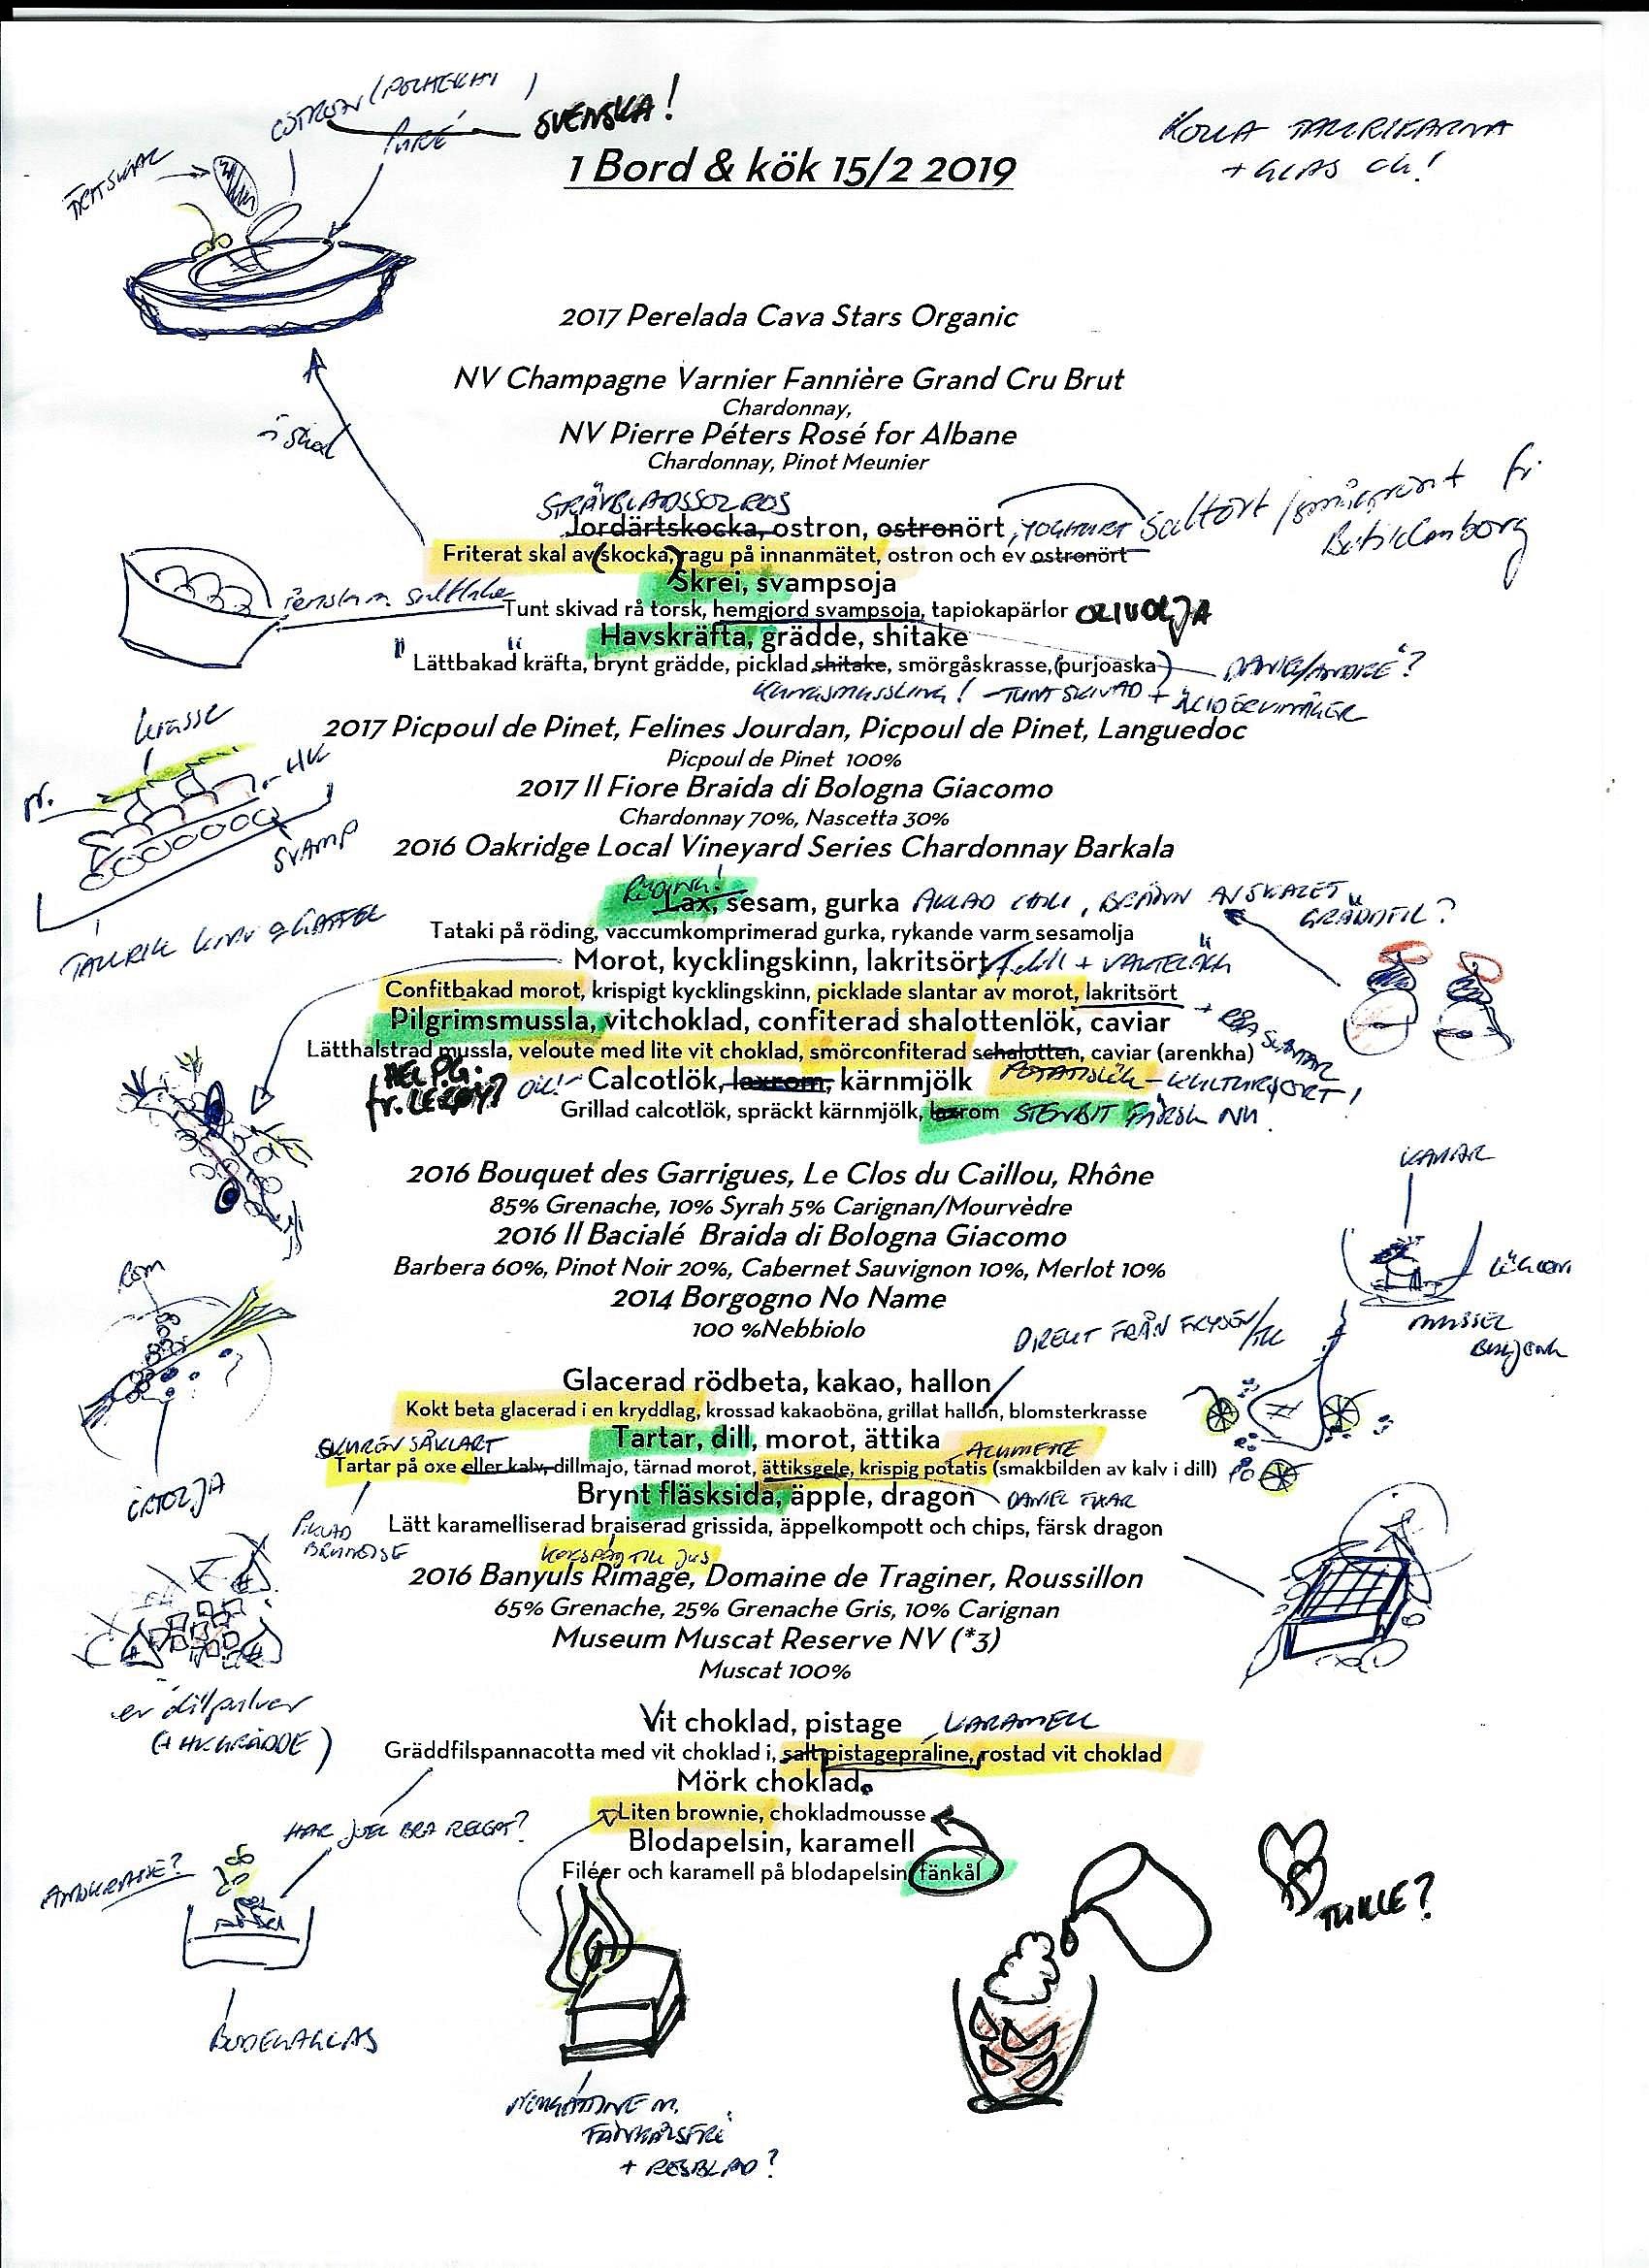 OSTRON (POCHERAT)
PURÉ
SVENSKA!
KOLLA TALLRIKARNA
+ GLAS OK!
1 Bord & kök 15/2 2019
2017 Perelada Cava Stars Organic
NV Champagne Varnier Fannière Grand Cru Brut
Chardonnay,
NV Pierre Péters Rosé for Albane
Chardonnay, Pinot Meunier
i skal
STRÄVBLADSSOLROS
Jordärtskocka, ostron, ostronört, YOGHURT Saltört /smågrönt fr.
Friterat skal av (skocka,) ragu på innanmätet, ostron och ev ostronört
Skrei, svampsoja
Tunt skivad rå torsk, hemgjord svampsoja, tapiokapärlor OLIVOLJA
Havskräfta, grädde, shitake
"Lättbakad" kräfta, brynt grädde, picklad shitake, smörgåskrasse, (purjoaska) DANIEL/ANDRÉ"?
KUNGSMUSSLING! - TUNT SKIVAD +
krasse
HK
SVAMP
TALLRIK KNIV & GAFFEL
2017 Picpoul de Pinet, Felines Jourdan, Picpoul de Pinet, Languedoc
Picpoul de Pinet 100%
2017 Il Fiore Braida di Bologna Giacomo
Chardonnay 70%, Nascetta 30%
2016 Oakridge Local Vineyard Series Chardonnay Barkala
RÖDING!
Lax, sesam, gurka
GRÄDDFIL?
Tataki på röding, vaccumkomprimerad gurka, rykande varm sesamolja
Morot, kycklingskinn, lakritsört / dill +
Confitbakad morot, krispigt kycklingskinn, picklade slantar av morot, lakritsört
+ RÅA SLANTAR
Pilgrimsmussla, vitchoklad, confiterad shalottenlök, caviar
Lätthalstrad mussla, veloute med lite vit choklad, smörconfiterad schalotten, caviar (arenkha)
HEL P.G.
fr. LEROY?
OK!
Calcotlök, laxrom, kärnmjölk POTATISLÖK - KULTURSORT!
Grillad calcotlök, spräckt kärnmjölk, laxrom STENBIT FÄRSK NU
2016 Bouquet des Garrigues, Le Clos du Caillou, Rhône
85% Grenache, 10% Syrah 5% Carignan/Mourvèdre
2016 Il Bacialé Braida di Bologna Giacomo
Barbera 60%, Pinot Noir 20%, Cabernet Sauvignon 10%, Merlot 10%
2014 Borgogno No Name
100 %Nebbiolo
KAVIAR
MUSSEL
Rom
ÖRTOLJA
DIREKT FRÅN FRYSEN/
Glacerad rödbeta, kakao, hallon
Kokt beta glacerad i en kryddlag, krossad kakaoböna, grillat hallon, blomsterkrasse
Tartar, dill, morot, ättika
SKUREN SÅKLART
ALUMETTE
Tartar på oxe eller kalv, dillmajo, tärnad morot, ättiksgele, krispig potatis (smakbilden av kalv i dill)
Brynt fläsksida, äpple, dragon DANIEL FIXAR
Lätt karamelliserad braiserad grissida, äppelkompott och chips, färsk dragon
PIKLAD
BRUNOISE
KOKSPAD TILL JUS
2016 Banyuls Rimage, Domaine de Traginer, Roussillon
65% Grenache, 25% Grenache Gris, 10% Carignan
Museum Muscat Reserve NV (*3)
Muscat 100%
ev dillpulver
(+ HK GRÄDDE)
Vit choklad, pistage, KARAMELL
Gräddfilspannacotta med vit choklad i, salt pistagepraline, rostad vit choklad
Mörk choklad
Liten brownie, chokladmousse
HAR JOEL BRA RECEPT?
Blodapelsin, karamell
Filéer och karamell på blodapelsin fänkål
TUILLE?
BODEGAGLAS
NOUGATINE M.
FÄNKÅLSFRÖ
+ ROSBLAD?